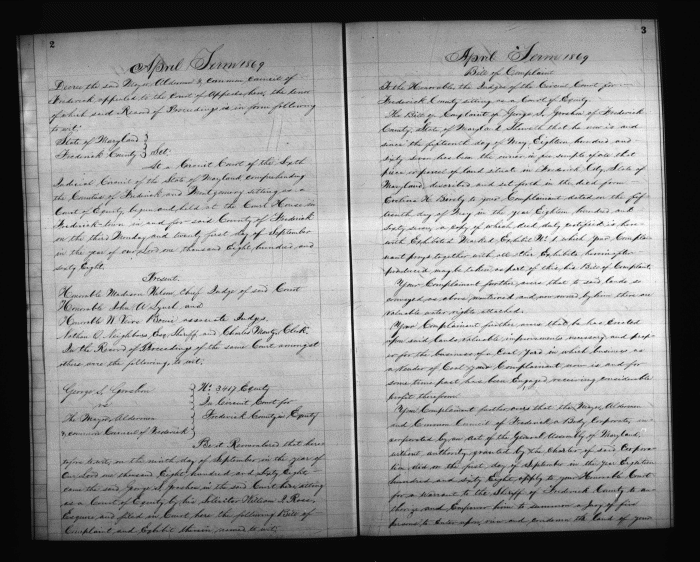 2
April Term 1869
Decree the said Mayor Aldermen & common Council of
Frederick appealed to the Court of Appeals, the tenor
of which said Record of Proceedings is in form following
to wit:
State of Maryland }
Frederick County } Sct:
At a Circuit Court of the Sixth
Judicial Circuit of the State of Maryland comprehending
the Counties of Frederick and Montgomery sitting as a
Court of Equity begun and held at the Court House in
Frederick-town in and for said County of Frederick
on the third Monday and twenty first day of September
in the year of our Lord one thousand Eight hundred and
sixty Eight.
Present
Honorable Madison Nelson, Chief Judge of said Court
Honorable John A Lynch and
Honorable W Viers Bouic associate Judges.
Nathan O. Neighbours, Esq. Sheriff and Charles Mantz, Clerk
In the Record of Proceedings of the same Court amongst
others were the following, to wit.
George S. Groshon } No. 3417 Equity
vs } In Circuit Court for
The Mayor, Aldermen } Frederick County in Equity
& common Council of Frederick }
Be it Remembered that here
tofore to wit, on the ninth day of September in the year of
Our Lord one thousand Eight hundred and Sixty Eight
came the said George S. Groshon in the said Court here sitting
as a Court of Equity by his Solicitor William J. Ross
Esquire and filed in Court here the following Bill of
Complaint and Exhibit therein named to wit:
3
April Term 1869
Bill of Complaint
To the Honorable the Judges of the Circuit Court for
Frederick County sitting as a Court of Equity.
The Bill of Complaint of George S. Groshon of Frederick
County, State of Maryland, Sheweth that he now is and
since the fifteenth day of May Eighteen hundred and
sixty seven has been the owner in fee simple of all that
piece or parcel of land situate in Frederick City, State of
Maryland, described and set forth in the deed from
Carolina H. to your Complainant dated on the fif-
teenth day of May in the year Eighteen hundred and
Sixty seven, a copy of which deed duly certified is here
with Exhibited Marked Exhibit No. 1 which your Complai-
nant prays together with all other Exhibits hereinafter
produced may be taken as part of this his Bill of Complaint.
Your Complainant further avers that to said lands so
conveyed as above mentioned and now owned by him there are
valuable water rights attached.
Your Complainant further avers that he has Erected
upon said Lands valuable improvements necessary and prop-
er for the business of a Coal Yard in which business as
a vendor of Coal your Complainant now is and for
some time past has been Engaged receiving considerable
profit therefrom
Your Complainant further avers that the Mayor, Aldermen
and Common Council of Frederick a Body Corporate, in-
corporated by an Act of the General Assembly of Maryland,
without authority granted by the Charter of said Corpora-
tion, did on the first day of September in the year Eighteen
hundred and sixty Eight, apply to your Honorable Court
for a warrant to the Sheriff of Frederick County to au-
thorize and Empower him to summon a jury of five
persons to Enter upon, view and condemn the land of your